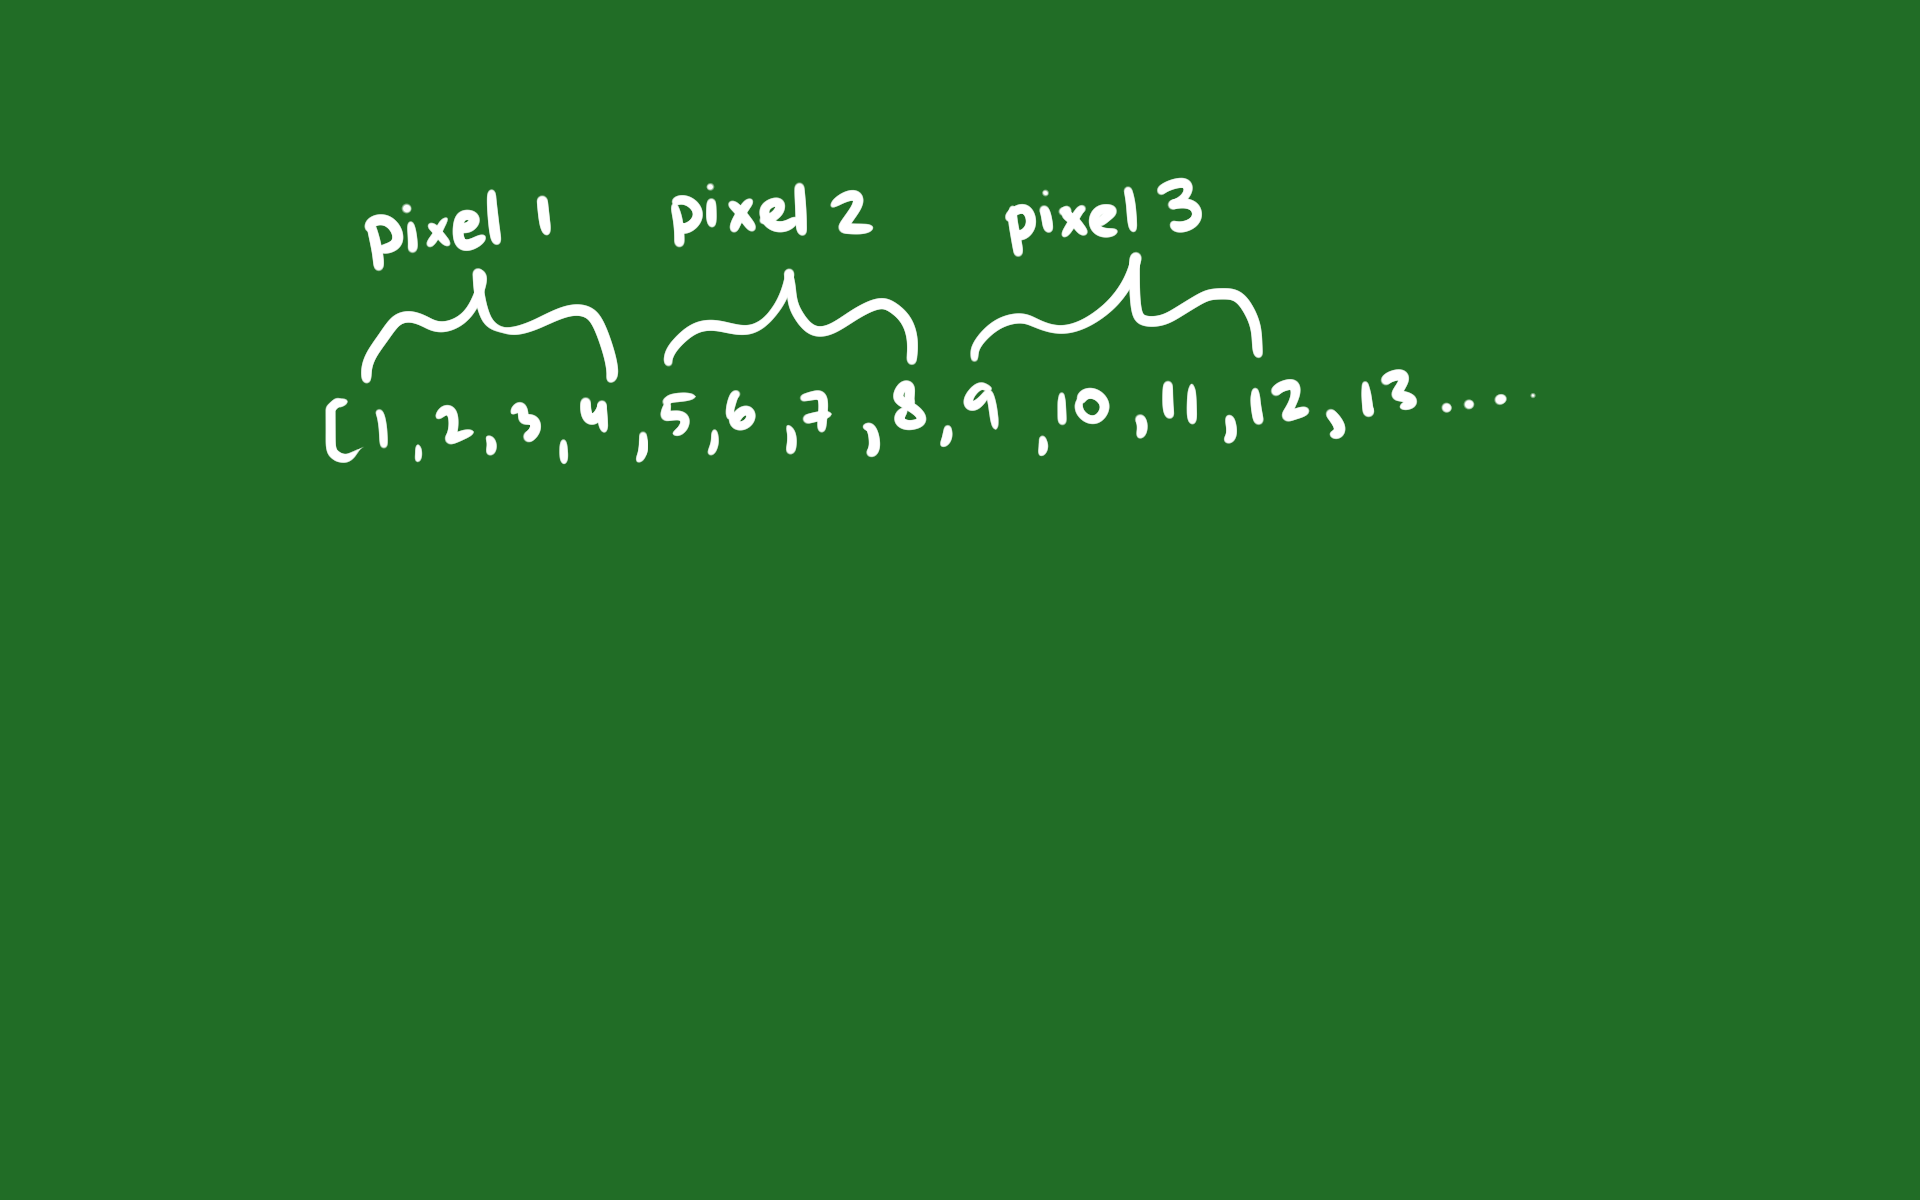 pixel 1 pixel 2 pixel 3
[1,2,3,4,5,6,7,8,9,10,11,12,13....